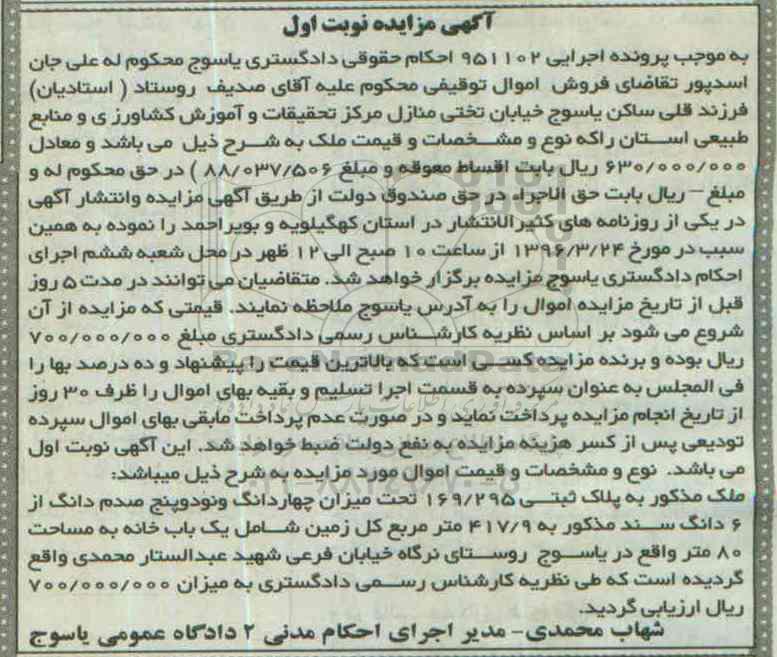 آگهی مزایده نوبت اول
به موجب پرونده اجرایی ۹۵۱۱۰۲ احکام حقوقی دادگستری یاسوج محکوم له علی جان
اسدپور تقاضای فروش اموال توقیفی محکوم علیه آقای صدیف روستاد ( استادیان)
فرزند قلی ساکن یاسوج خیابان تختی منازل مرکز تحقیقات و آموزش کشاورز ی و منابع
طبیعی استان راکه نوع و مشخصات و قیمت ملک به شرح ذیل می باشد و معادل
۶۳۰/۰۰۰/۰۰۰ ریال بابت اقساط معوقه و مبلغ ۸۸/۰۳۷/۵۰۶ ) در حق محکوم له و
مبلغ – ریال بابت حق الاجرا، در حق صندوق دولت از طریق آگهی مزایده وانتشار آگهی
در یکی از روزنامه های کثیرالانتشار در استان کهگیلویه و بویراحمد را نموده به همین
سبب در مورخ ۱۳۹۶/۳/۲۴ از ساعت ۱۰ صبح الی ۱۲ ظهر در محل شعبه ششم اجرای
احکام دادگستری یاسوج مزایده برگزار خواهد شد. متقاضیان می توانند در مدت ۵ روز
قبل از تاریخ مزایده اموال را به آدرس یاسوج ملاحظه نمایند. قیمتی که مزایده از آن
شروع می شود بر اساس نظریه کارشناس رسمی دادگستری مبلغ ۷۰۰/۰۰۰/۰۰۰
ریال بوده و برنده مزایده کسی است که بالاترین قیمت را پیشنهاد و ده درصد بها را
فی المجلس به عنوان سپرده به قسمت اجرا تسلیم و بقیه بهای اموال را ظرف ۳۰ روز
از تاریخ انجام مزایده پرداخت نماید و در صورت عدم پرداخت مابقی بهای اموال سپرده
تودیعی پس از کسر هزینه مزایده به نفع دولت ضبط خواهد شد. این آگهی نوبت اول
می باشد. نوع و مشخصات و قیمت اموال مورد مزایده به شرح ذیل میباشد:
ملک مذکور به پلاک ثبتی ۱۶۹/۲۹۵ تحت میزان چهاردانگ ونودوپنج صدم دانگ از
۶ دانگ سند مذکور به ۴۱۷/۹ متر مربع کل زمین شامل یک باب خانه به مساحت
۸۰ متر واقع در یاسوج روستای نرگاه خیابان فرعی شهید عبدالستار محمدی واقع
گردیده است که طی نظریه کارشناس رسمی دادگستری به میزان ۷۰۰/۰۰۰/۰۰۰
ریال ارزیابی گردید.
شهاب محمدی- مدیر اجرای احکام مدنی ۲ دادگاه عمومی یاسوج